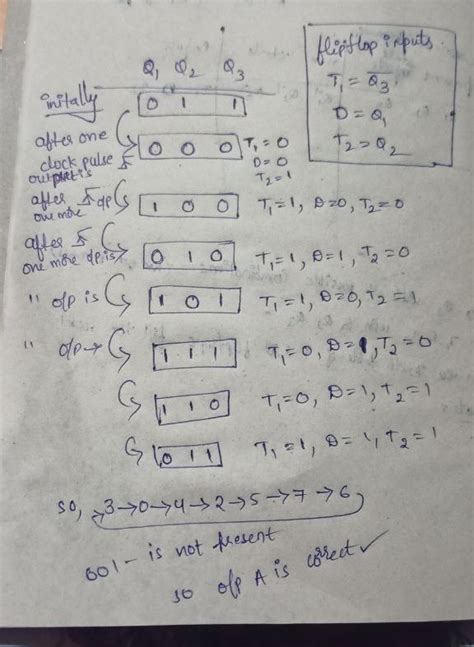 flipflop inputs
T₁ = Q̅₃
D = Q₁
T₂ = Q₂
Q₁ Q₂ Q₃
initally 0 1 1
after one clock pulse output is 0 0 0 T₁=0 D=0 T₂=1
after one more o/p 1 0 0 T₁=1, D=0, T₂=0
after one more o/p is 0 1 0 T₁=1, D=1, T₂=0
" o/p is 1 0 1 T₁=1, D=0, T₂=1
" o/p → 1 1 1 T₁=0, D=1, T₂=0
1 1 0 T₁=0, D=1, T₂=1
0 1 1 T₁=1, D=1, T₂=1
so, 3→0→4→2→5→7→6
001 - is not present
so o/p A is correct ✓